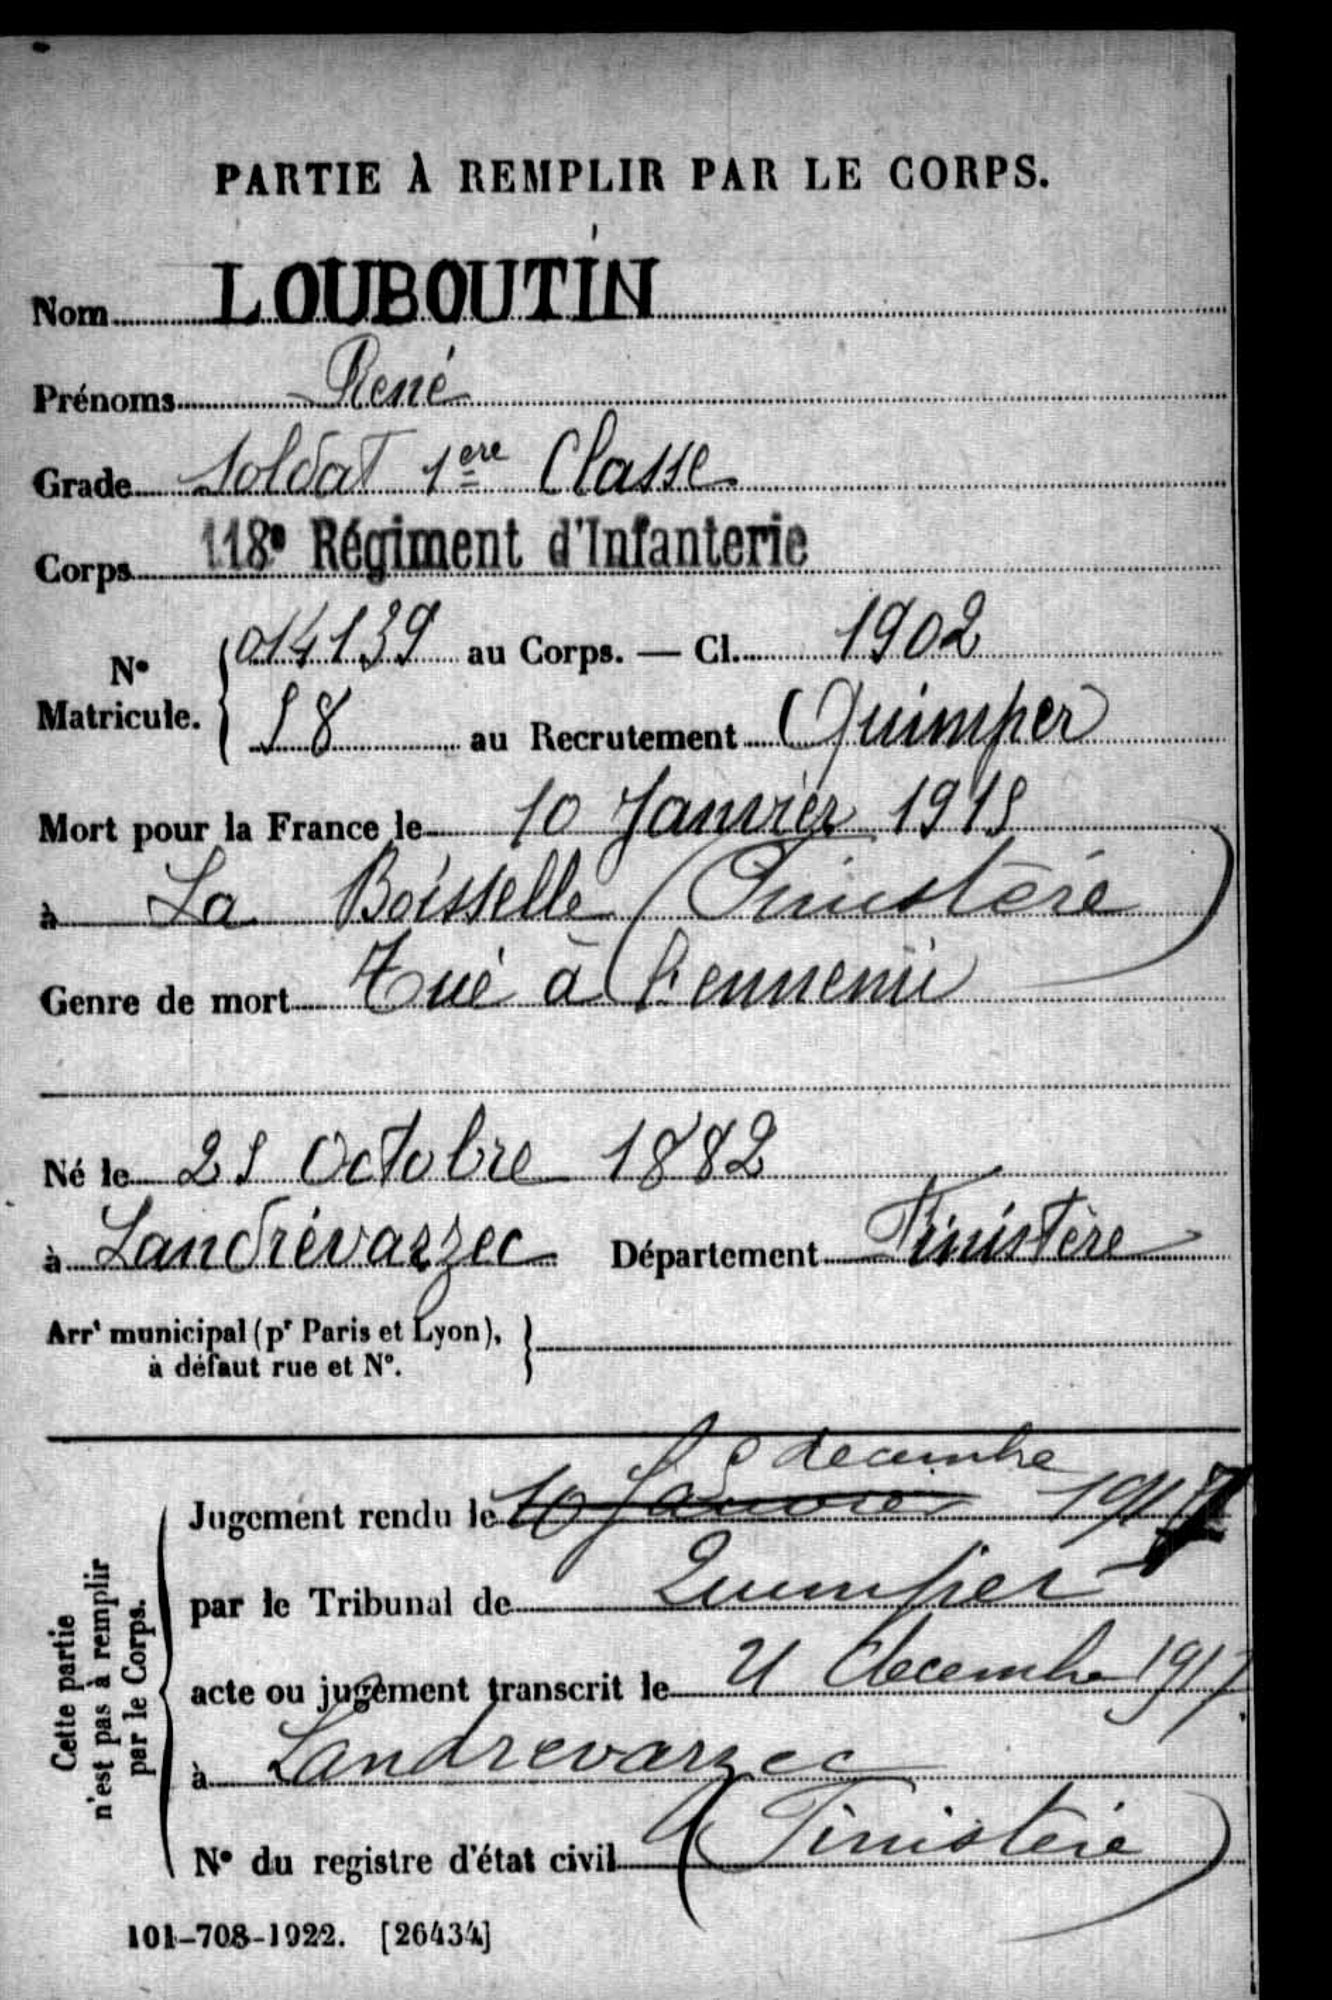 PARTIE À REMPLIR PAR LE CORPS.
Nom LOUBOUTIN
Prénoms René
Grade Soldat 1ere Classe
Corps 118e Régiment d'Infanterie
N° Matricule. { 014139 au Corps. — Cl. 1902
58 au Recrutement Quimper
Mort pour la France le 10 Janvier 1915
à La Boisselle (Finistère)
Genre de mort Tué à l'ennemi
Né le 25 Octobre 1882
à Landrévarzec Département Finistère
Arrt municipal (pr Paris et Lyon), à défaut rue et N°. }
Cette partie n'est pas à remplir par le Corps.
decembre
Jugement rendu le 10 Janvier 1917
par le Tribunal de Quimper
acte ou jugement transcrit le 21 decembre 1917.
à Landrevarzec
N° du registre d'état civil (Finistère)
101-708-1922. [26434]